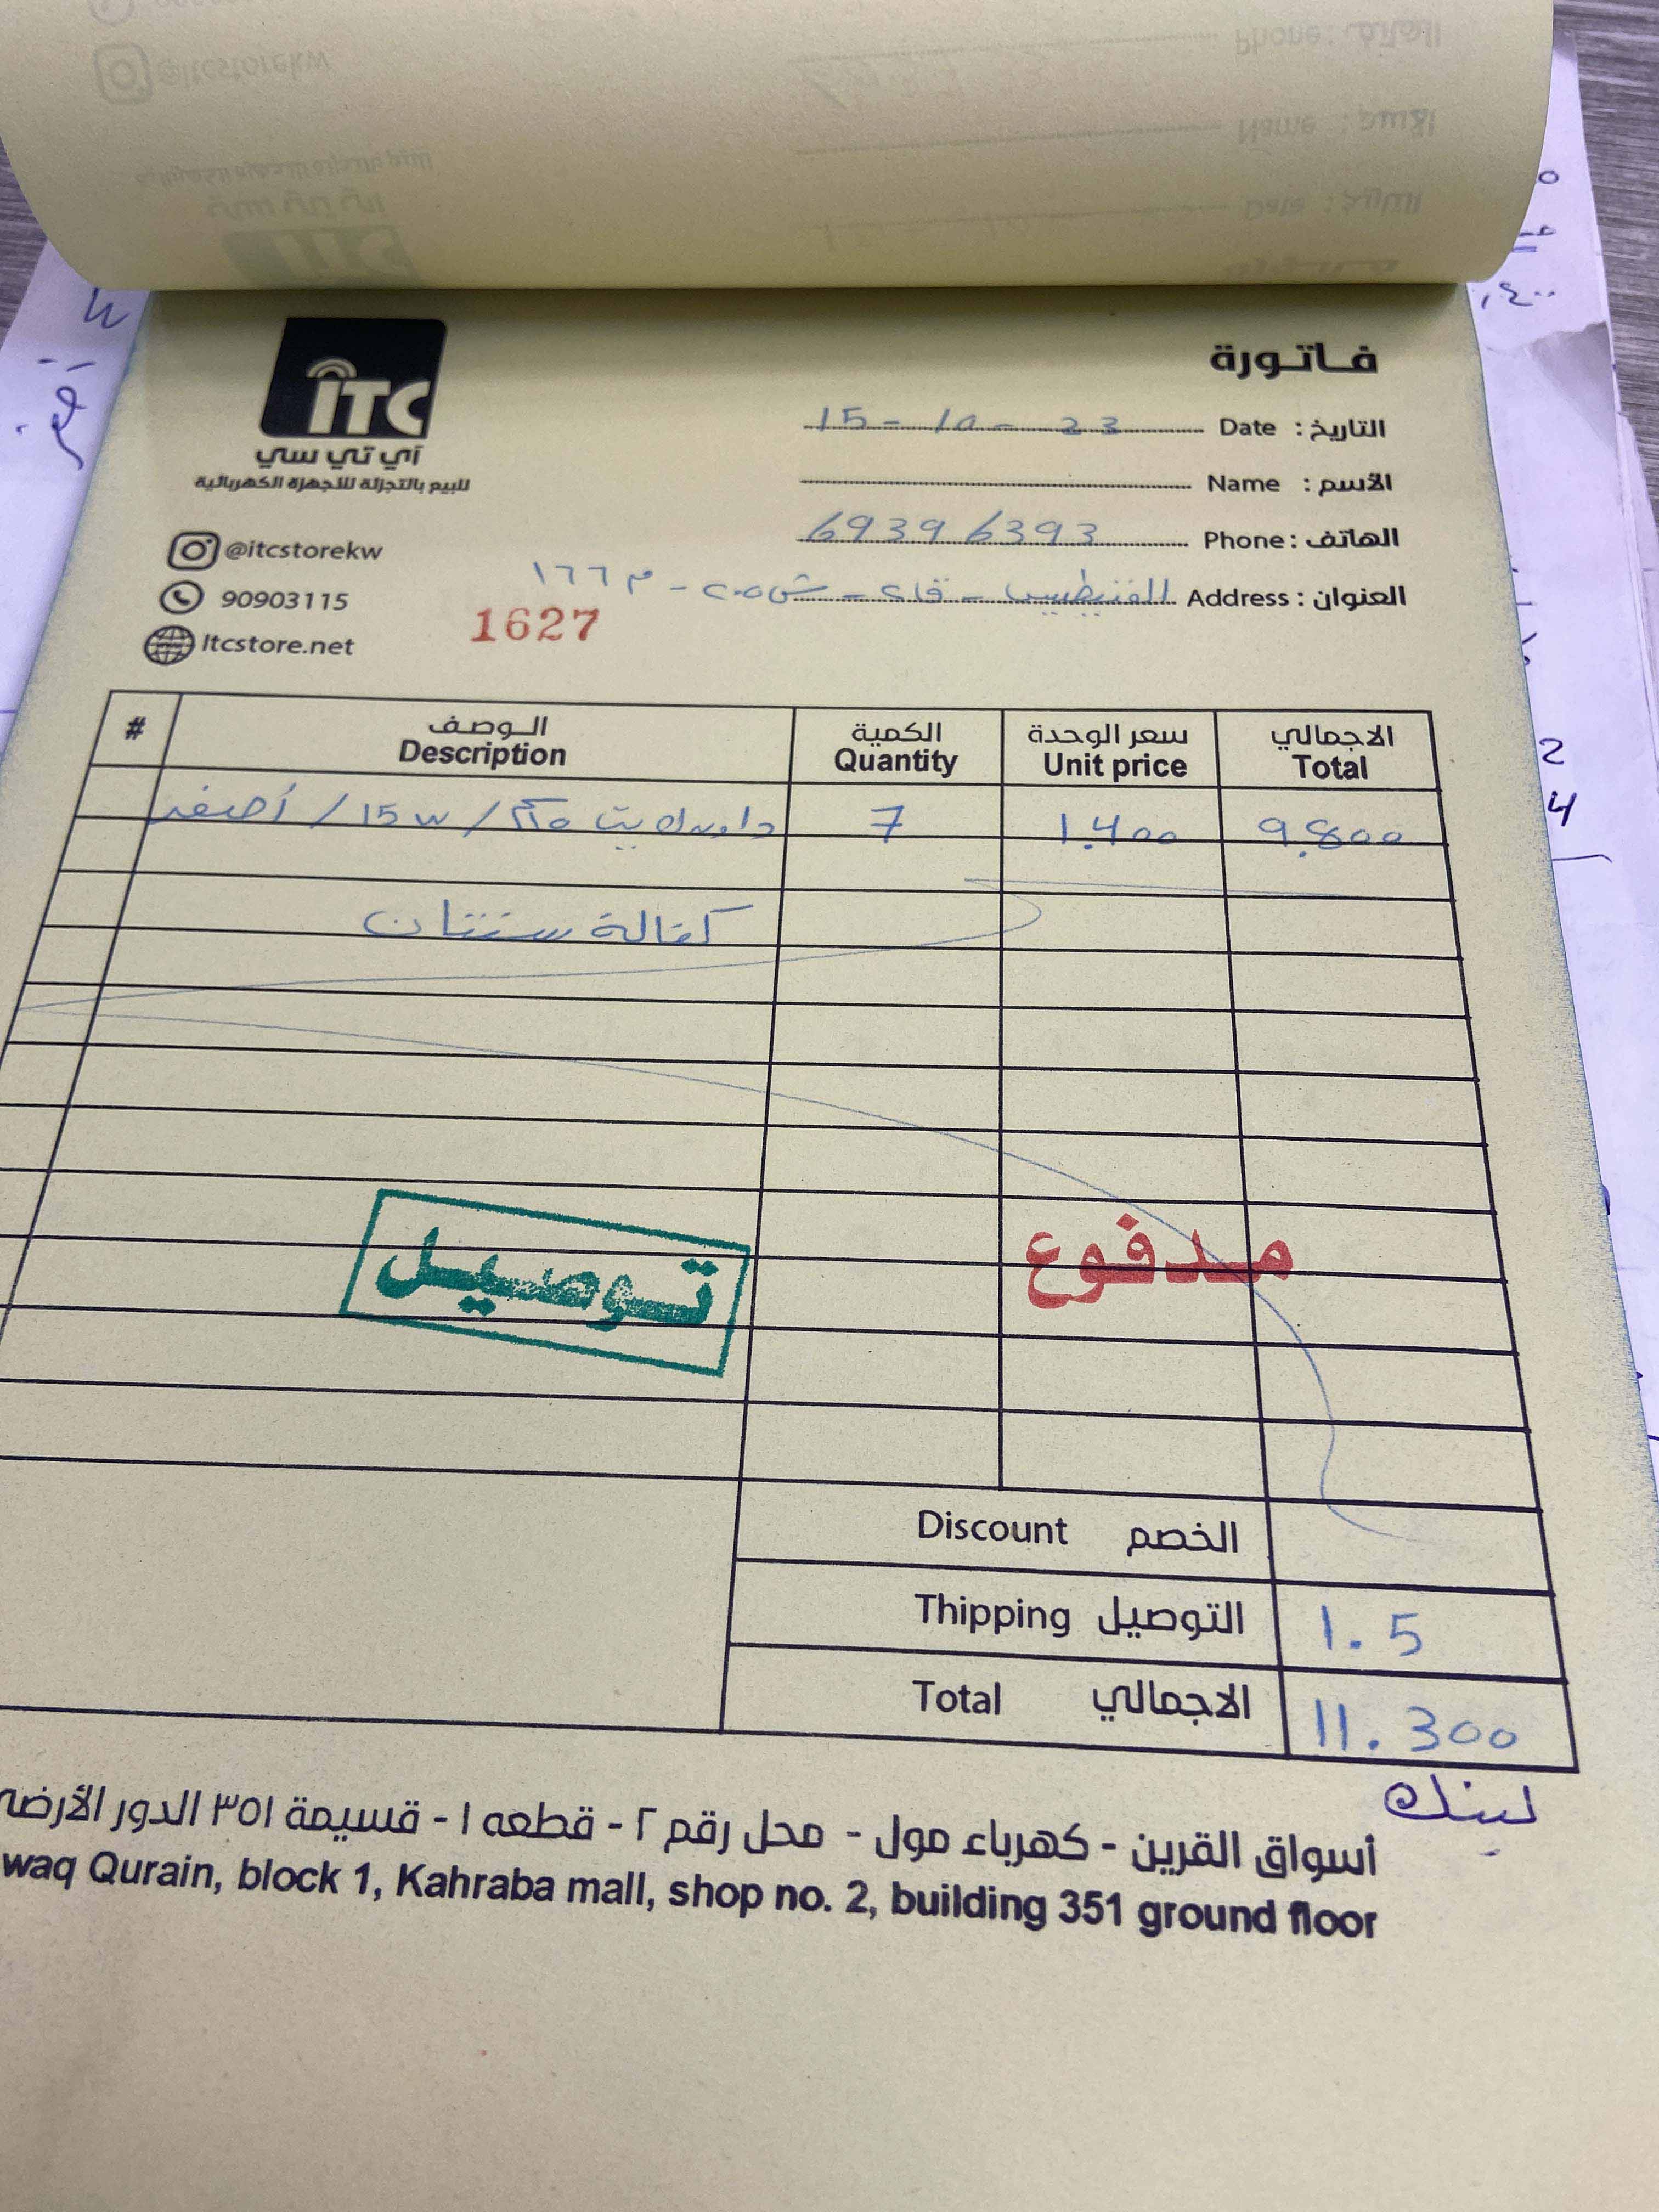 ITC
آي تي سي
للبيع بالتجزئة للأجهزة الكهربائية
@itcstorekw
90903115
Itcstore.net
1627
فاتورة
التاريخ : Date 15-10-23
الأسم : Name
الهاتف : Phone 69396393
العنوان : Address الفنيطيس - ق٢ - ش٢٠٥ - م ١٦٦
# الوصف Description الكمية Quantity سعر الوحدة Unit price الاجمالي Total
داون لايت / 15w / أصفر 7 1.400 9.800
كفالة سنتان
توصيل
مدفوع
Discount الخصم
Thipping التوصيل 1.5
Total الاجمالي 11.300
لينك
أسواق القرين - كهرباء مول - محل رقم ٢ - قطعه ١ - قسيمة ٣٥١ الدور الأرضي
waq Qurain, block 1, Kahraba mall, shop no. 2, building 351 ground floor